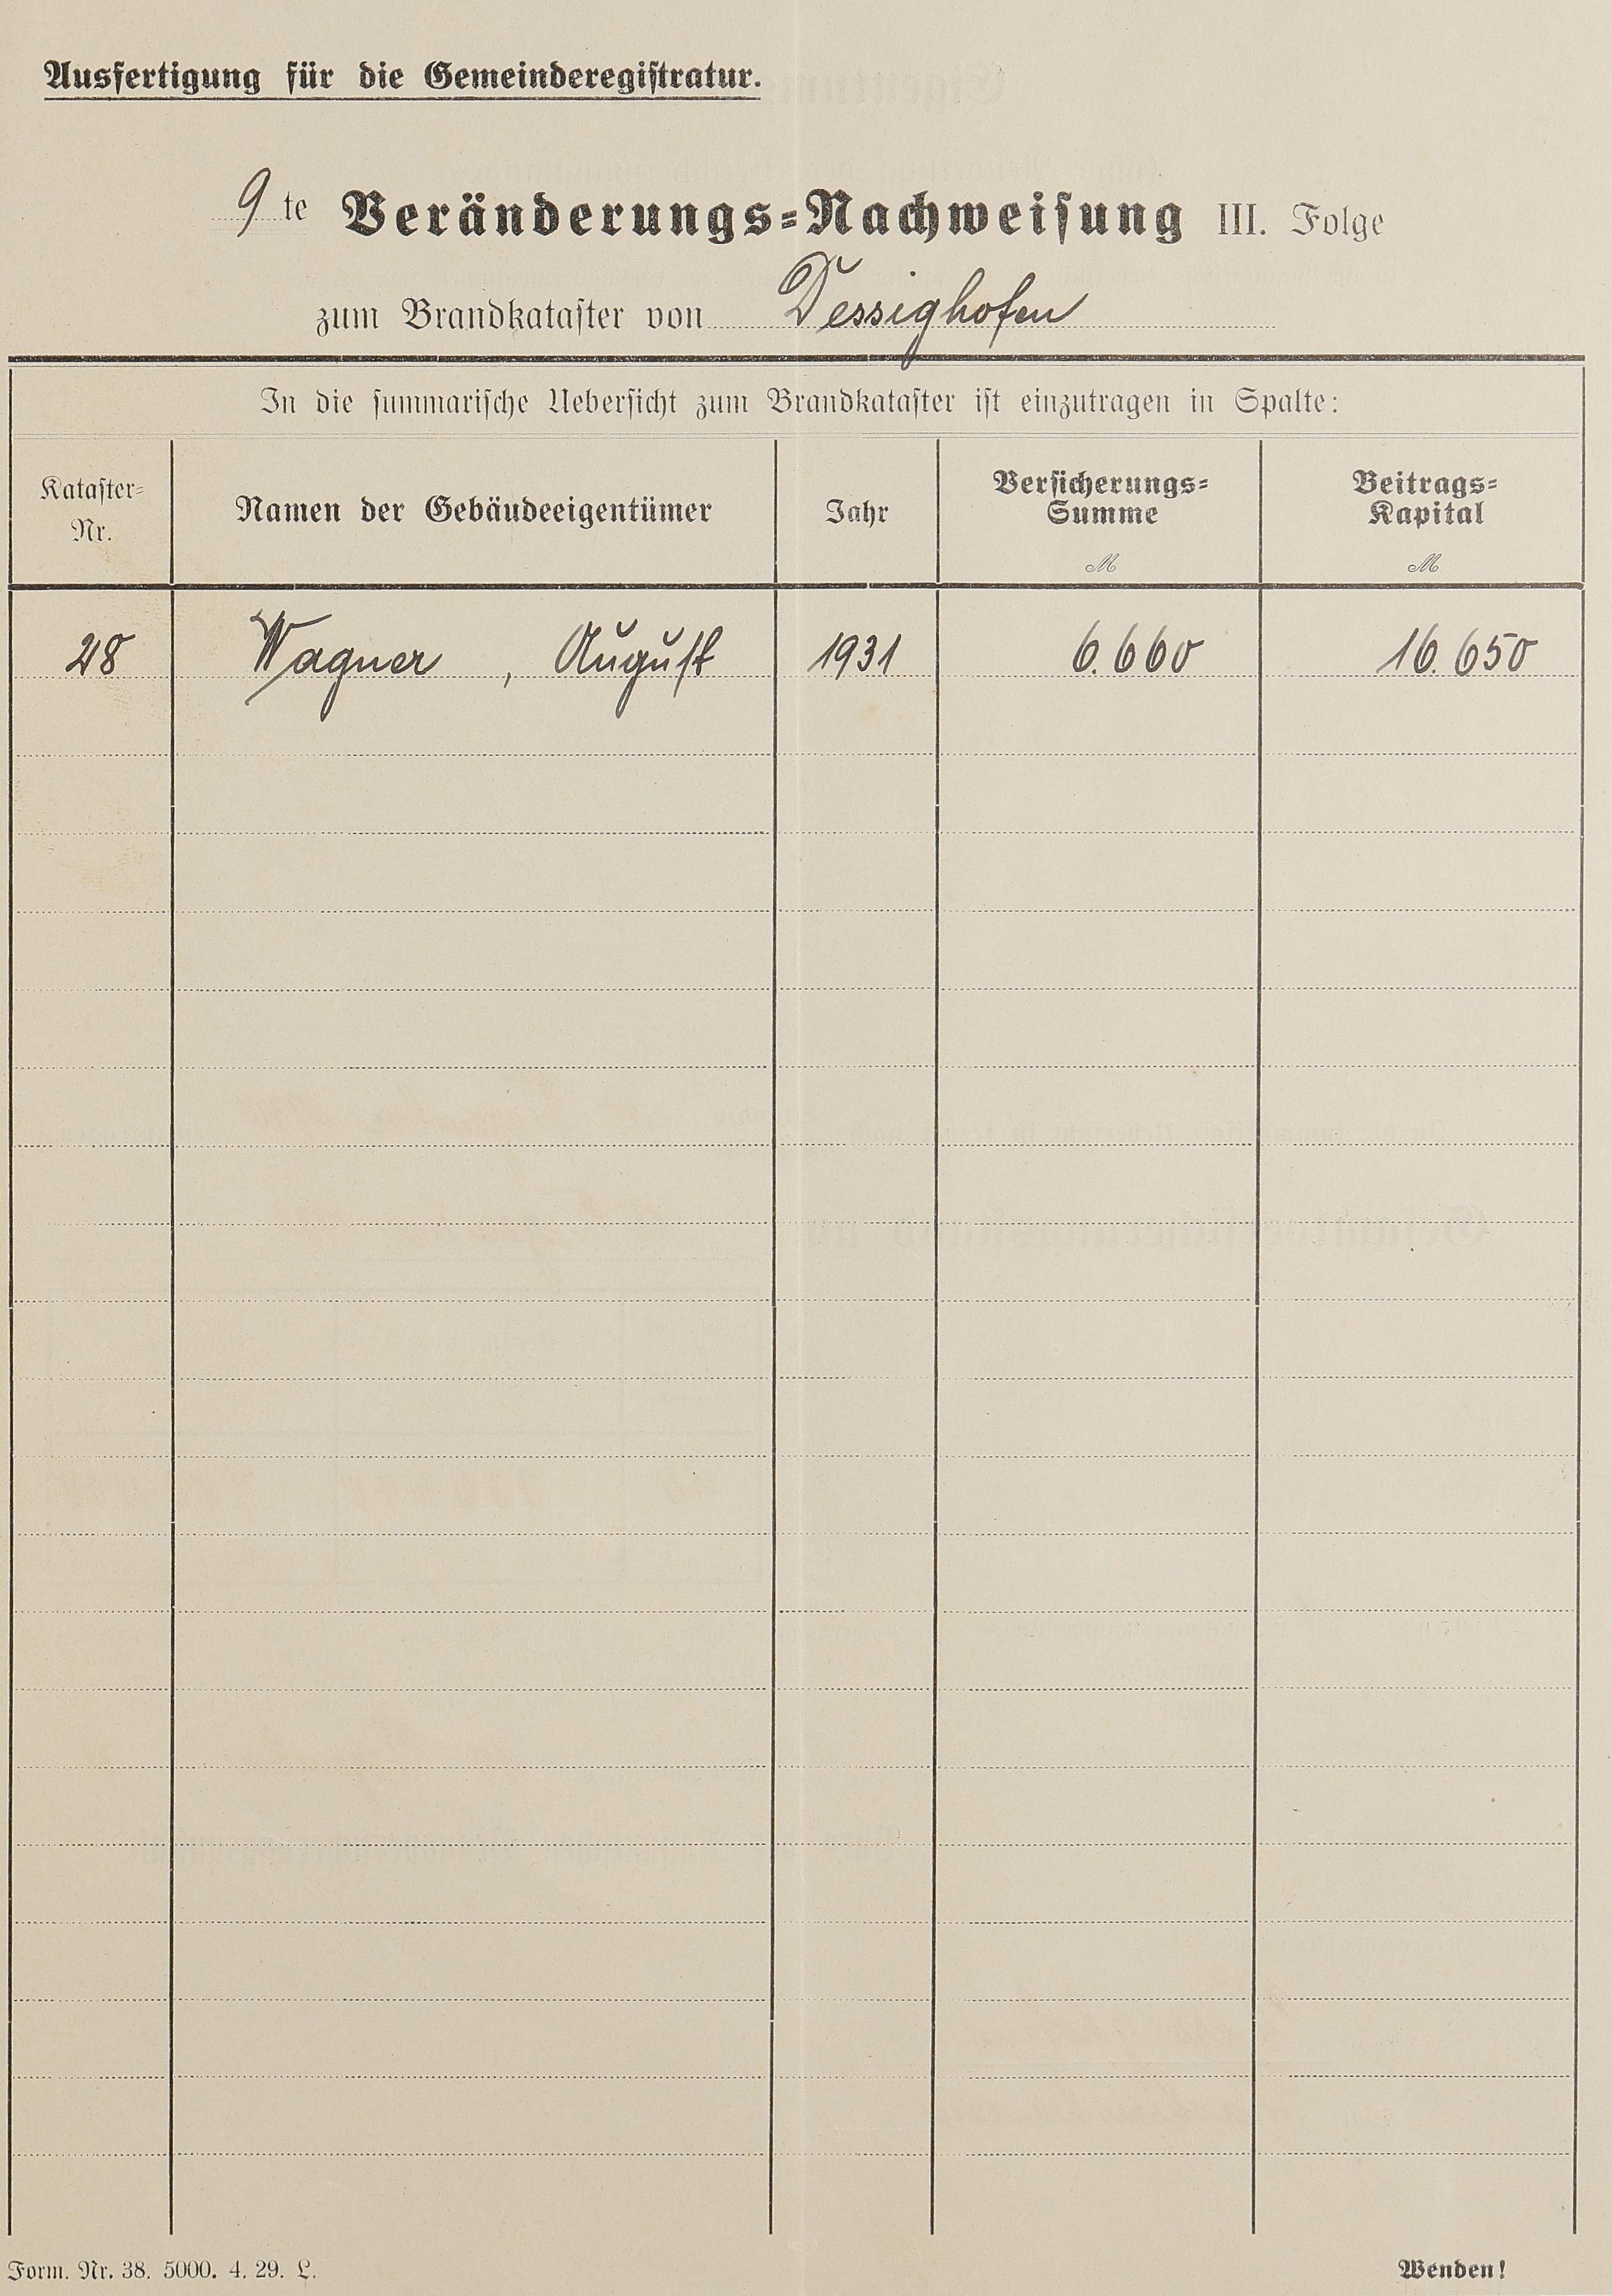 Ausfertigung für die Gemeinderegistratur.
9te Veränderungs-Nachweisung III. Folge
zum Brandkataster von Dessighofen
In die summarische Uebersicht zum Brandkataster ist einzutragen in Spalte:
Kataster-
Nr.
Namen der Gebäudeeigentümer
Jahr
Versicherungs-
Summe
M
Beitrags-
Kapital
M
28 Wagner, August 1931 6.660 16.650
Form. Nr. 38. 5000. 4. 29. L.
Wenden!